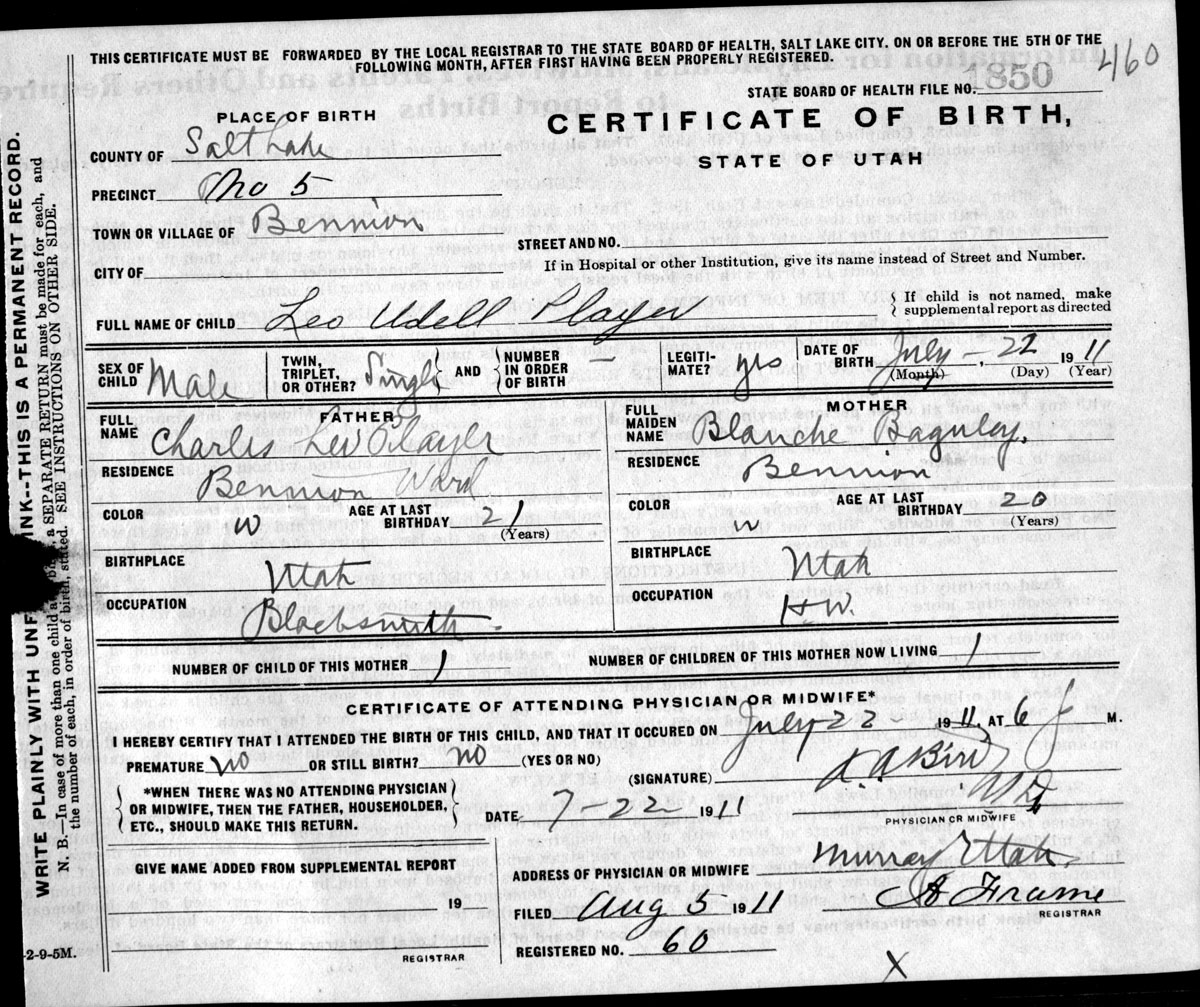 THIS CERTIFICATE MUST BE FORWARDED BY THE LOCAL REGISTRAR TO THE STATE BOARD OF HEALTH, SALT LAKE CITY. ON OR BEFORE THE 5TH OF THE
FOLLOWING MONTH, AFTER FIRST HAVING BEEN PROPERLY REGISTERED.
460
STATE BOARD OF HEALTH FILE NO. 1850
PLACE OF BIRTH
CERTIFICATE OF BIRTH,
STATE OF UTAH
COUNTY OF Salt Lake
PRECINCT No 5
TOWN OR VILLAGE OF Bennion
STREET AND NO.
CITY OF
If in Hospital or other Institution, give its name instead of Street and Number.
FULL NAME OF CHILD Leo Udell Player
{ If child is not named, make
supplemental report as directed
SEX OF CHILD Male
TWIN, TRIPLET, OR OTHER? Single AND { NUMBER IN ORDER OF BIRTH —
LEGITIMATE? yes
DATE OF BIRTH July - , 22 1911
(Month) (Day) (Year)
FATHER
FULL NAME Charles Lev Player
RESIDENCE Bennion Ward
COLOR W AGE AT LAST BIRTHDAY 21
(Years)
BIRTHPLACE Utah
OCCUPATION Blacksmith
MOTHER
FULL MAIDEN NAME Blanche Baguley.
RESIDENCE Bennion
COLOR W AGE AT LAST BIRTHDAY 20
(Years)
BIRTHPLACE Utah
OCCUPATION H.W.
NUMBER OF CHILD OF THIS MOTHER 1
NUMBER OF CHILDREN OF THIS MOTHER NOW LIVING 1
CERTIFICATE OF ATTENDING PHYSICIAN OR MIDWIFE*
I HEREBY CERTIFY THAT I ATTENDED THE BIRTH OF THIS CHILD, AND THAT IT OCCURED ON July 22 - 1911, AT 6 M.
PREMATURE No OR STILL BIRTH? no (YES OR NO)
(SIGNATURE)
*WHEN THERE WAS NO ATTENDING PHYSICIAN
OR MIDWIFE, THEN THE FATHER, HOUSEHOLDER,
ETC., SHOULD MAKE THIS RETURN.
DATE 7-22- 1911
PHYSICIAN OR MIDWIFE
GIVE NAME ADDED FROM SUPPLEMENTAL REPORT
19
REGISTRAR
ADDRESS OF PHYSICIAN OR MIDWIFE Murray Utah.
FILED Aug 5 1911 Frame
REGISTRAR
REGISTERED NO. 60
X
-2-9-5M.
INK--THIS IS A PERMANENT RECORD.
WRITE PLAINLY WITH UNF
N. B.—In case of more than one child at, a SEPARATE RETURN must be made for each, and
the number of each, in order of birth, stated. SEE INSTRUCTIONS ON OTHER SIDE.